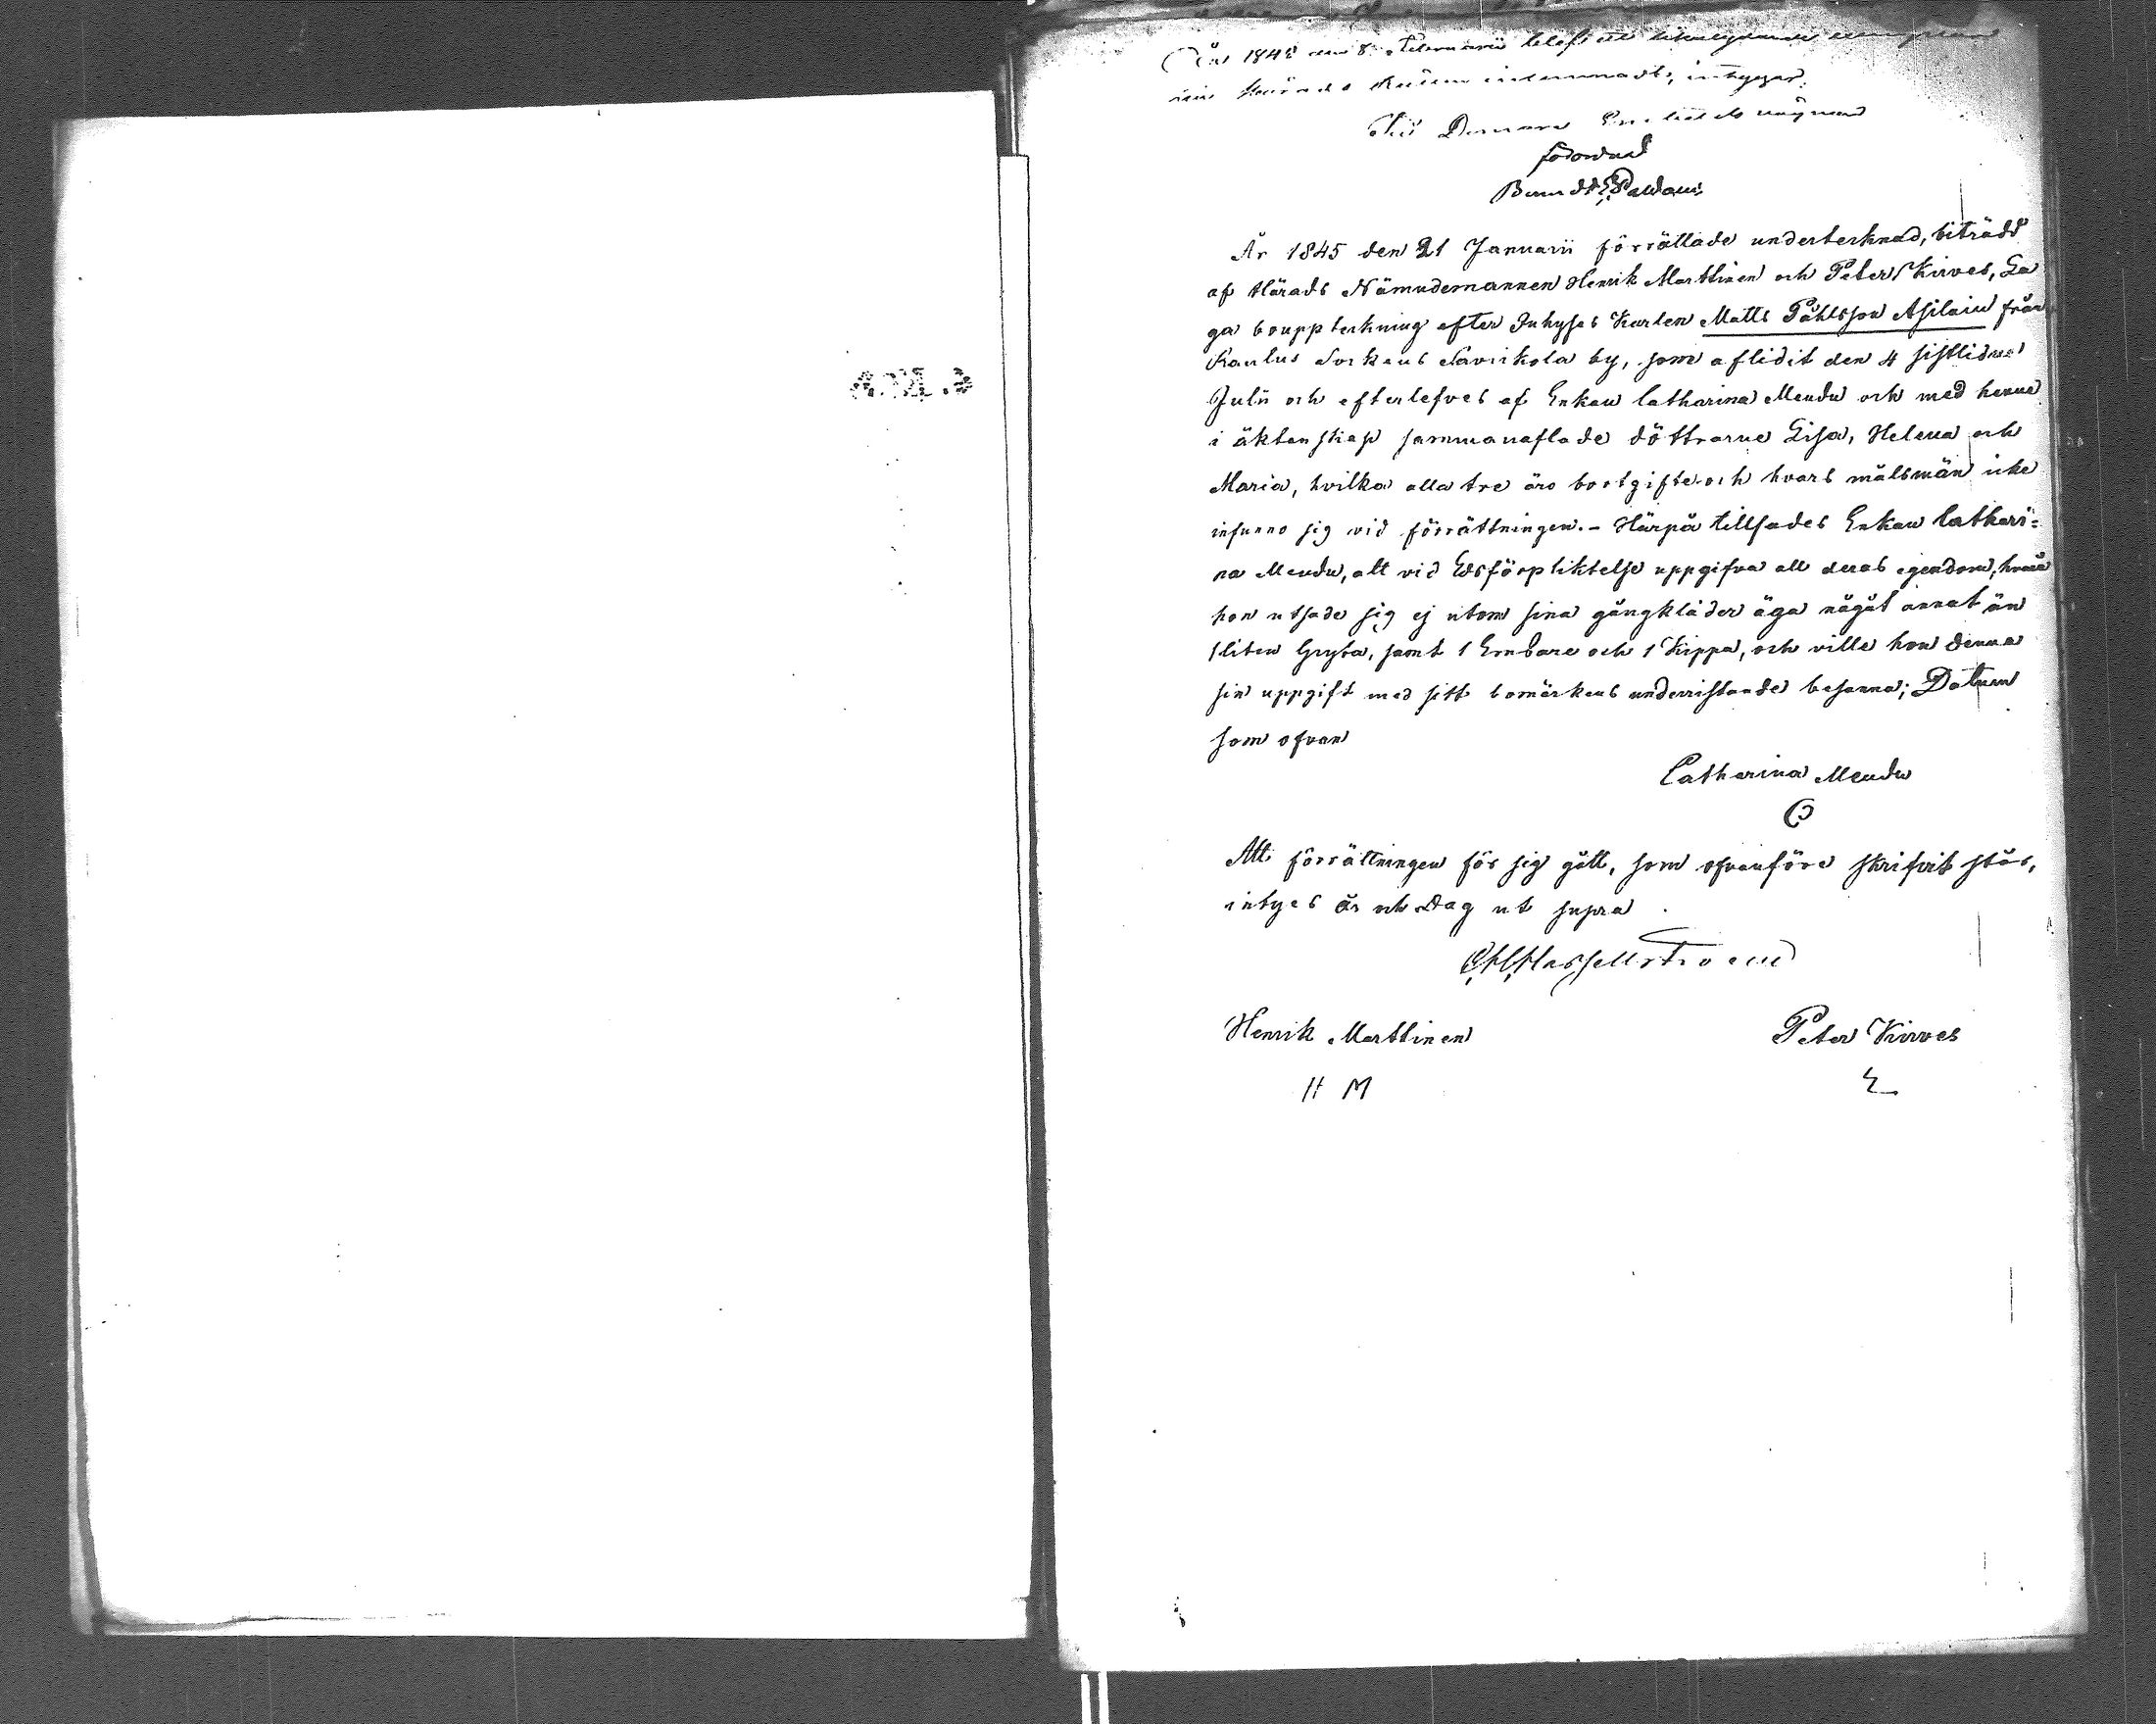 År 1848 den 8 Februarii blef ett likalydande exemplar
till Härads Rätten inlemnadt, intygar.
På Domare Embetets vägnar
förordnad
Berndt Paldani
År 1845 den 21 Januarii förrättade undertecknad, biträdd
af Härads Nämndemannen Henrik Marttinen och Peter Kirves, La
ga bouppteckning efter Inhyses Karlen Matts Påhlsson Asilain från
Rautus Sockens Savikola by, som aflidit den 4 sistlidne
Julii och efterlefves af Enkan Catharina Mendu och med henne
i äktenskap sammanaflade döttrarne Lisa, Helena och
Maria, hvilka alla tre äro bortgifte och hvars målsmän icke
infunno sig vid förrättningen. - Härpå tillsades Enkan Cathari=
na Mendu, att vid Edsförpliktelse uppgifva all deras egendom,
hon utsade sig ej utom sina gångkläder äga något annat än
1 liten Gryta, samt 1 Embare och 1 Kippa, och ville hon denna
sin uppgift med sitt bomärkes underristande besanna; Datum
som ofvan
Catharina Mendu
Att förrättningen för sig gått, som ofvanföre skrifvit står,
intygas år och dag ut supra
Hassellstroem
Henrik Marttinen Peter Kirves
H M